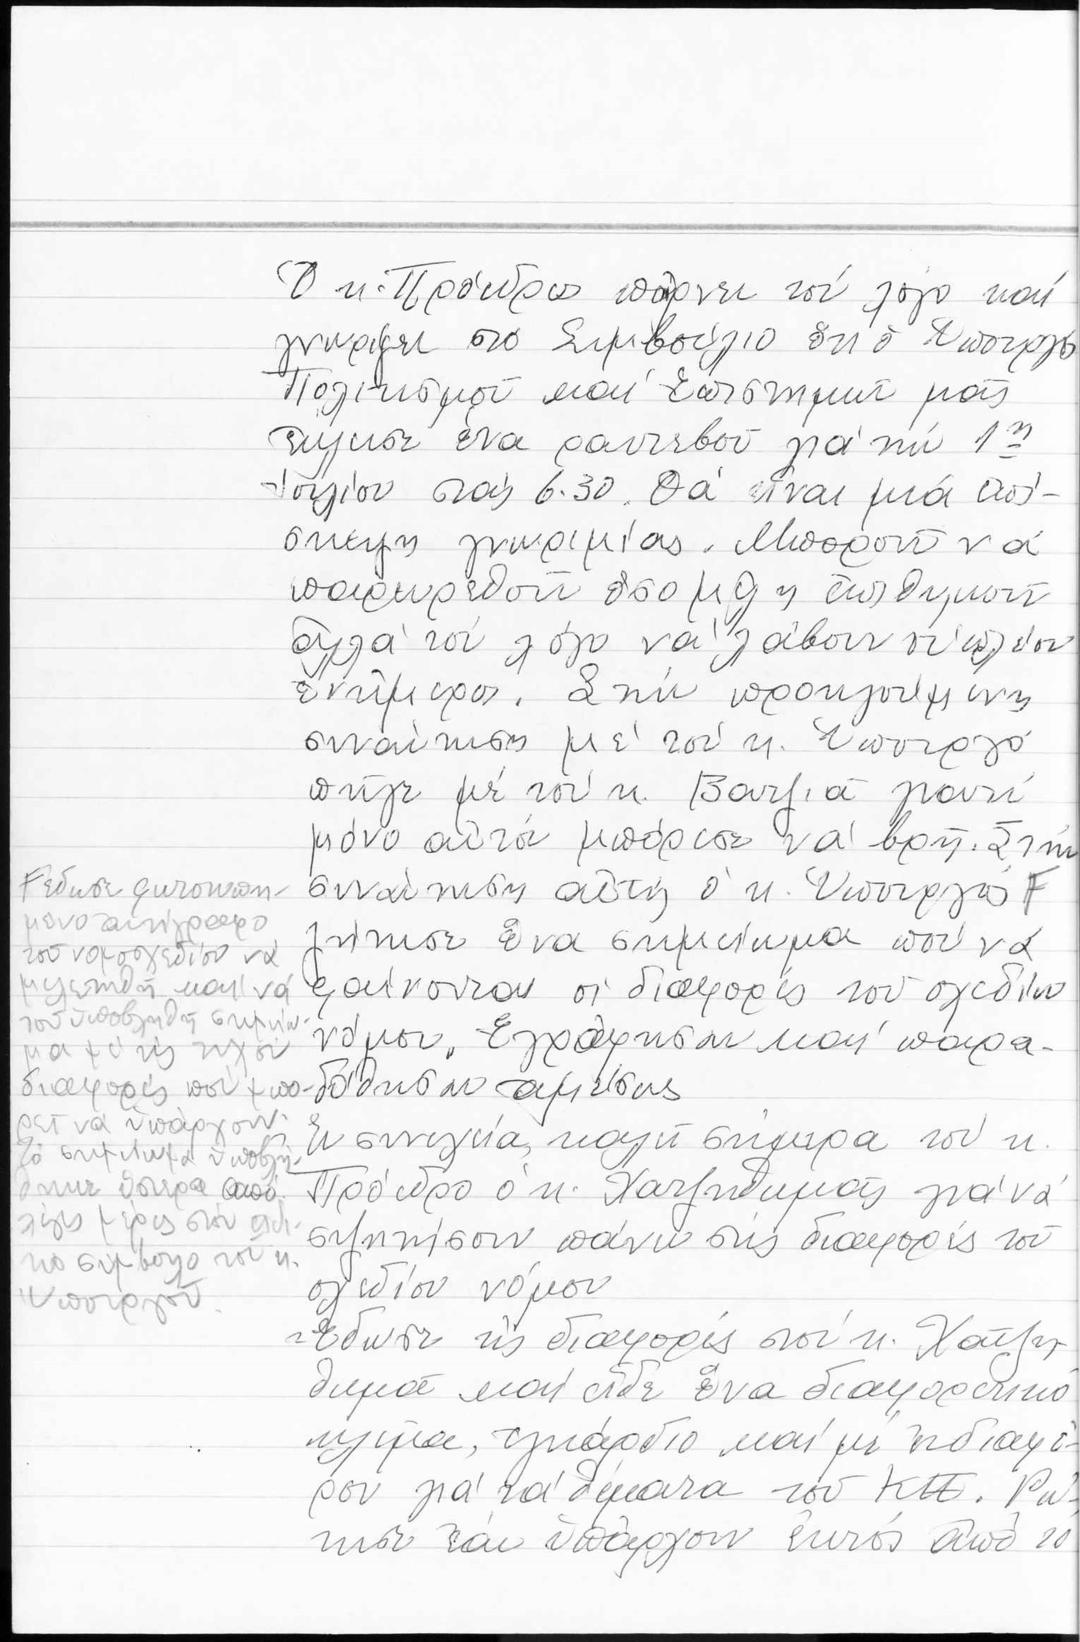 Ὁ κ. Πρόεδρος παίρνει τόν λόγο καί
γνωρίζει στό Συμβούλιο ὅτι ὁ Ὑπουργός
Πολιτισμοῦ καί Ἐπιστημῶν μᾶς
ἔκλεισε ἕνα ραντεβοῦ γιά τήν 1η
Ἰουλίου στάς 6.30. Θά εἶναι μιά ἐπί-
σκεψη γνωριμίας. Μποροῦν νά
παρευρεθοῦν ὅσα μέλη ἐπιθυμοῦν
ἀλλά τόν λόγο νά λάβουν οἱ πλέον
ἐνήμεροι. Στήν προηγούμενη
συνάντηση μέ τόν κ. Ὑπουργό
πῆγε μέ τόν κ. Βατζιᾶ γιατί
μόνο αὐτόν μπόρεσε νά βρῆ. Στήν
συνάντηση αὐτή ὁ κ. Ὑπουργός F
ζήτησε ἕνα σημείωμα πού νά
φαίνονται οἱ διαφορές τοῦ σχεδίου
νόμου. Ἐγράφησαν καί παρα-
δόθησαν ἀμέσως
Ἐν συνεχεία, καλεῖ σήμερα τόν κ.
Πρόεδρο ὁ κ. Χατζηθωμᾶς γιά νά
συζητήσουν πάνω στίς διαφορές τοῦ
σχεδίου νόμου
Ἔδωσε τίς διαφορές στόν κ. Χατζη-
θωμᾶ καί εἶδε ἕνα διαφορετικό
κλίμα, ἐγκάρδιο καί μέ ἐνδιαφέ-
ρον γιά τά θέματα τοῦ ΚΕΕ. Ρώ-
τησε ἐάν ὑπάρχουν ἐκτός ἀπό τό
F ἔδωσε φωτοτυπη-
μένο ἀντίγραφο
τοῦ νομοσχεδίου νά
μελετηθῆ καί νά
τοῦ ὑποβληθῆ σημείω-
μα μέ τίς τυχόν
διαφορές πού μπο-
ρεῖ νά ὑπάρχουν.
Τό σημείωμα ὑποβλή-
θηκε ὕστερα ἀπό
λίγες μέρες στόν εἰδι-
κό σύμβουλο τοῦ κ.
Ὑπουργοῦ.